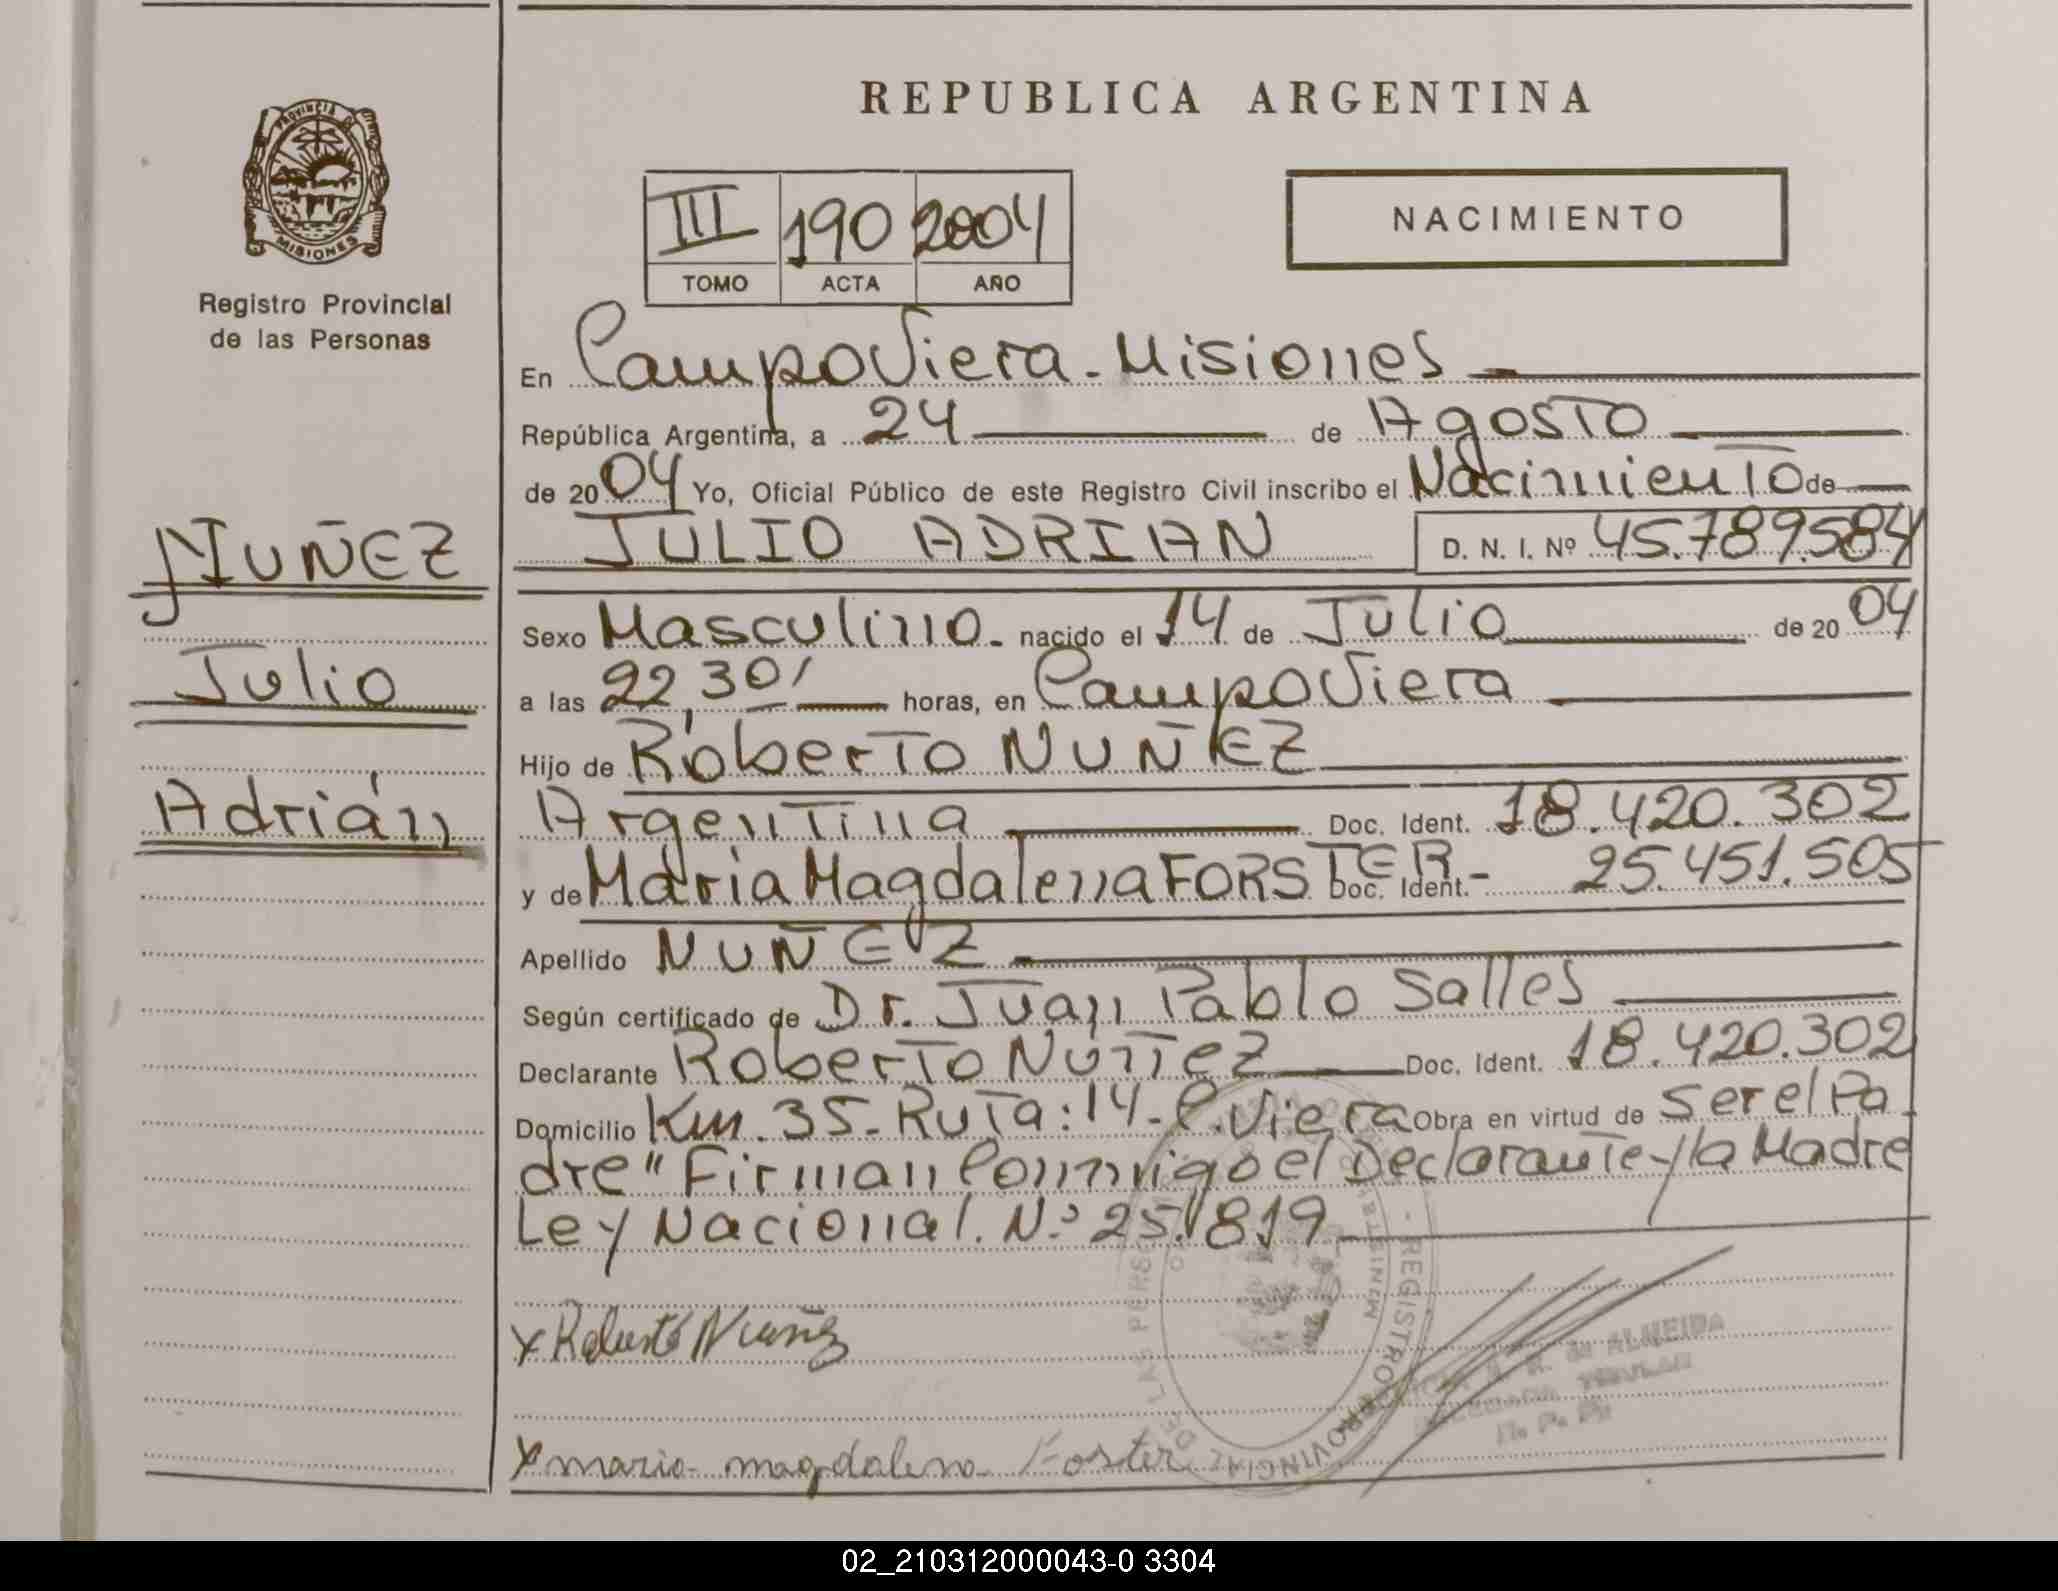 REPUBLICA ARGENTINA
PROVINCIA DE
MISIONES
Registro Provincial
de las Personas
III 190 2004
TOMO ACTA AÑO
NACIMIENTO
En Campo Viera - Misiones
República Argentina, a 24 de Agosto
de 2004 Yo, Oficial Público de este Registro Civil inscribo el Nacimiento de
JULIO ADRIAN D. N. I. Nº 45.789.584
NUÑEZ
Julio
Adrián
Sexo Masculino - nacido el 14 de Julio de 2004
a las 22,30' horas, en Campo Viera
Hijo de Roberto NUÑEZ
Argentina Doc. Ident. 18.420.302
y de Maria Magdalena FORSTER - Doc. Ident. 25.451.505
Apellido NUÑEZ
Según certificado de Dr. Juan Pablo Salles
Declarante Roberto Nuñez Doc. Ident. 18.420.302
Domicilio Km. 35 - Ruta: 14 - C. Viera Obra en virtud de ser el Pa
dre" Firman Conmigo el Declarante y la Madre
Ley Nacional. Nº 25.819
x Roberto Nuñez
x maria magdalena Foster
REGISTRO PROVINCIAL DE LAS PERSONAS
MINISTERIO
de ALMEIDA
TITULAR
R. P. P.
02_210312000043-0 3304